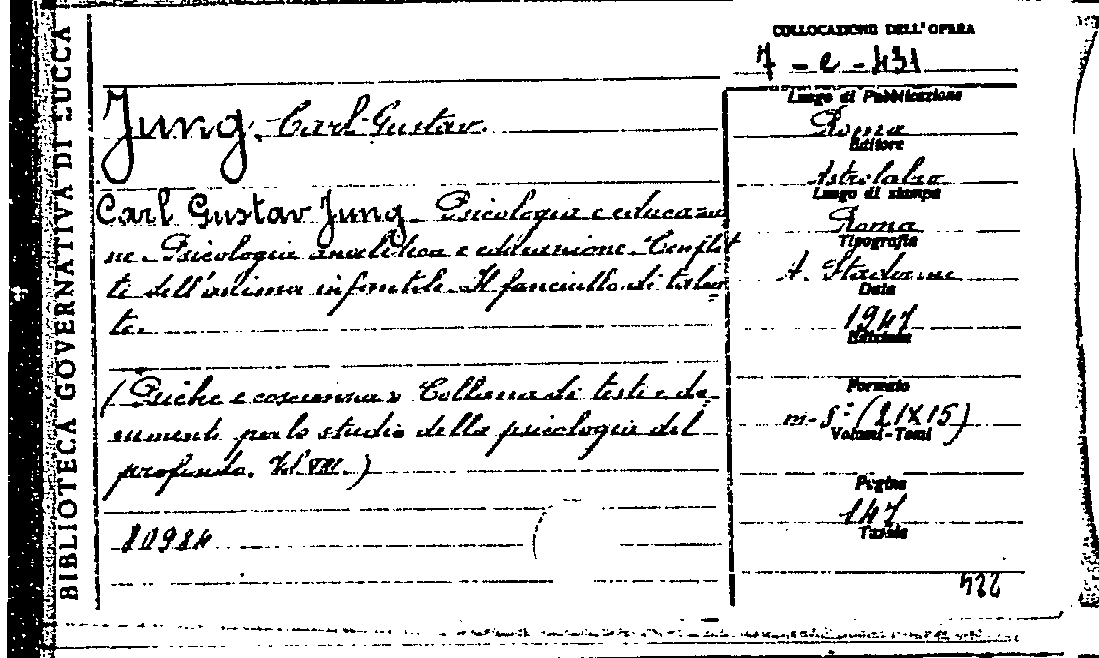 BIBLIOTECA GOVERNATIVA DI LUCCA
COLLOCAZIONE DELL'OPERA
7 - e - 431
Jung, Carl Gustav.
Carl Gustav Jung - Psicologia e educazio
ne - Psicologia analitica e educazione. Conflit
ti dell'anima infantile. Il fanciullo di talen
to.
(Psiche e coscienza» Collana di testi e do-
cumenti per lo studio della psicologia del
profondo. Vol. VIII.)
80984
Luogo di Pubblicazione
Roma
Editore
Astrolabio
Luogo di stampa
Roma
Tipografia
A. Staderini
Data
1947
Edizione
Formato
in-8° (21X15)
Volumi-Tomi
Pagine
147
Tavole
422